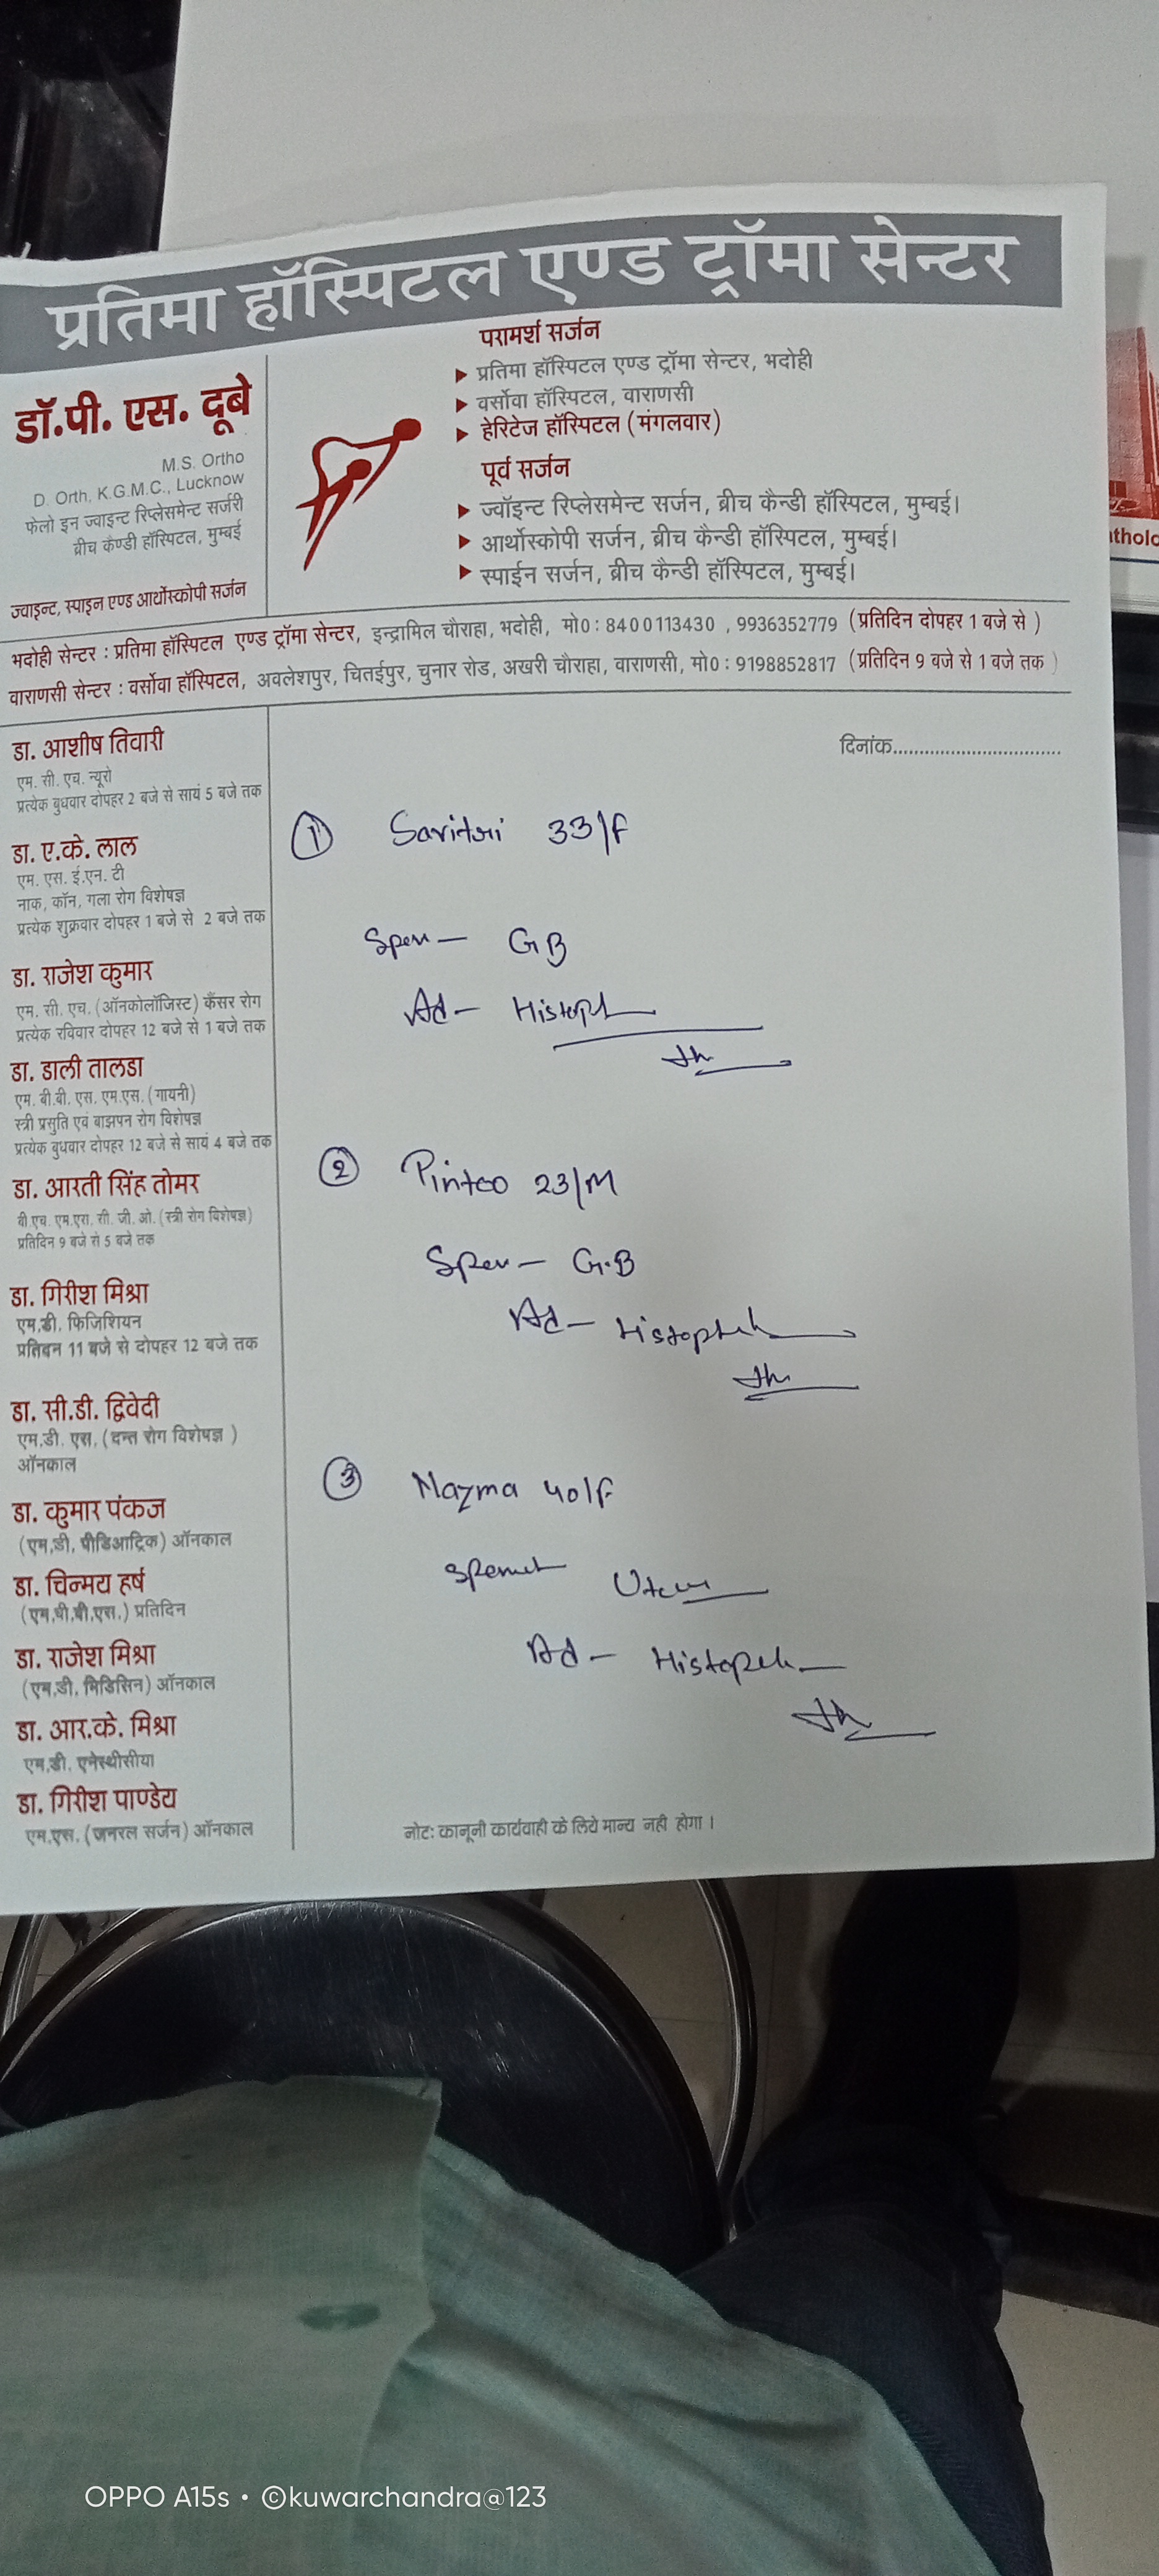 प्रतिमा हॉस्पिटल एण्ड ट्रॉमा सेन्टर
डॉ.पी. एस. दूबे
M.S. Ortho
D. Orth. K.G.M.C., Lucknow
फेलो इन ज्वाइन्ट रिप्लेसमेन्ट सर्जरी
ब्रीच कैण्डी हॉस्पिटल, मुम्बई
ज्वाइन्ट, स्पाइन एण्ड आर्थोस्कोपी सर्जन
परामर्श सर्जन
प्रतिमा हॉस्पिटल एण्ड ट्रॉमा सेन्टर, भदोही
वर्सोवा हॉस्पिटल, वाराणसी
हेरिटेज हॉस्पिटल (मंगलवार)
पूर्व सर्जन
ज्वॉइन्ट रिप्लेसमेन्ट सर्जन, ब्रीच कैन्डी हॉस्पिटल, मुम्बई।
आर्थोस्कोपी सर्जन, ब्रीच कैन्डी हॉस्पिटल, मुम्बई।
स्पाईन सर्जन, ब्रीच कैन्डी हॉस्पिटल, मुम्बई।
भदोही सेन्टर : प्रतिमा हॉस्पिटल एण्ड ट्रॉमा सेन्टर, इन्द्रामिल चौराहा, भदोही, मो0 : 8400113430 , 9936352779 (प्रतिदिन दोपहर 1 बजे से )
वाराणसी सेन्टर : वर्सोवा हॉस्पिटल, अवलेशपुर, चितईपुर, चुनार रोड, अखरी चौराहा, वाराणसी, मो0 : 9198852817 (प्रतिदिन 9 बजे से 1 बजे तक )
डा. आशीष तिवारी
एम. सी. एच. न्यूरो
प्रत्येक बुधवार दोपहर 2 बजे से सायं 5 बजे तक
डा. ए.के. लाल
एम. एस. ई.एन. टी
नाक, कॉन, गला रोग विशेषज्ञ
प्रत्येक शुक्रवार दोपहर 1 बजे से 2 बजे तक
डा. राजेश कुमार
एम. सी. एच. (ऑनकोलॉजिस्ट) कैंसर रोग
प्रत्येक रविवार दोपहर 12 बजे से 1 बजे तक
डा. डाली तालडा
एम. बी.बी. एस. एम.एस. (गायनी)
स्त्री प्रसुति एवं बाझपन रोग विशेषज्ञ
प्रत्येक बुधवार दोपहर 12 बजे से सायं 4 बजे तक
डा. आरती सिंह तोमर
बी.एच. एम.एस. सी. जी. ओ. (स्त्री रोग विशेषज्ञ)
प्रतिदिन 9 बजे से 5 बजे तक
डा. गिरीश मिश्रा
एम.डी. फिजिशियन
प्रतिदिन 11 बजे से दोपहर 12 बजे तक
डा. सी.डी. द्विवेदी
एम.डी. एस. (दन्त रोग विशेषज्ञ )
ऑनकाल
डा. कुमार पंकज
(एम.डी. पीडिआट्रिक) ऑनकाल
डा. चिन्मय हर्ष
(एम.बी.बी.एस.) प्रतिदिन
डा. राजेश मिश्रा
(एम.डी. मिडिसिन) ऑनकाल
डा. आर.के. मिश्रा
एम.डी. एनेस्थीसीया
डा. गिरीश पाण्डेय
एम.एस. (जनरल सर्जन) ऑनकाल
दिनांक................................
① Savitri 33/F
GB
Ad - Histoph
② Pintoo 23/M
G.B
Ad - Histopth
③ Nazma 40/F
Uterus
Ad - Histoph
नोट: कानूनी कार्यवाही के लिये मान्य नही होगा ।
OPPO A15s • ©kuwarchandra@123